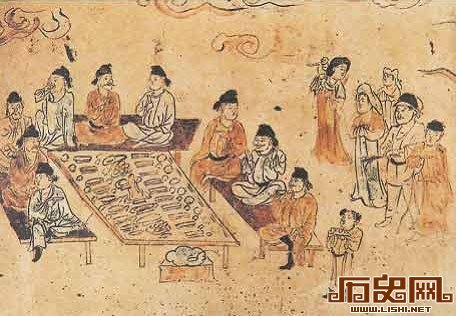 历史网
WWW.LISHI.NET